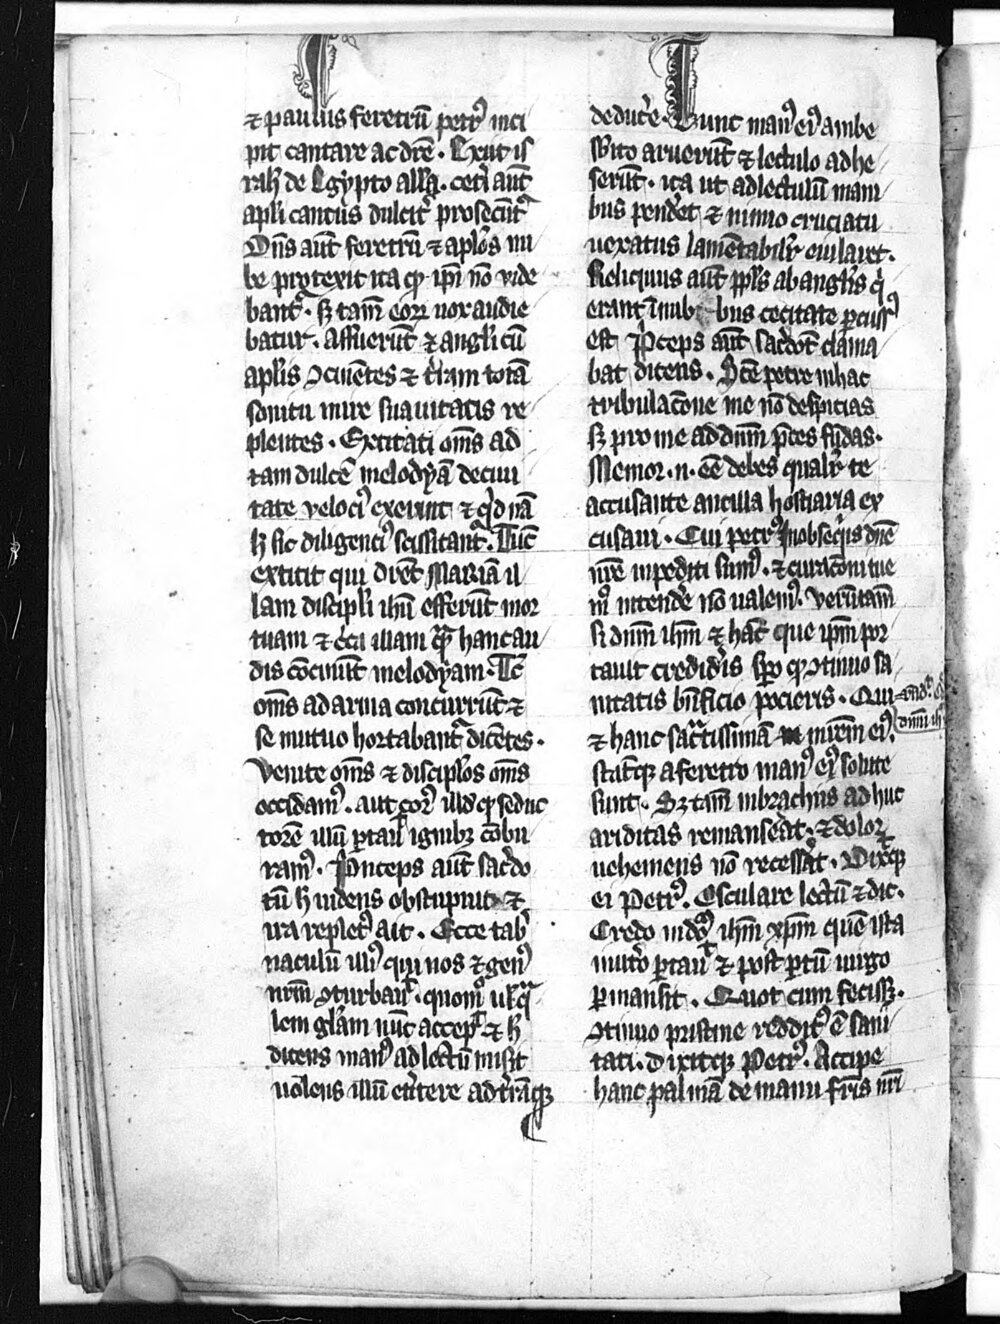 ⁊ paulus feretrū petrꝰ inci
pit cantare ac dr̄e . Exiit iſ
rah̄l de Egypto all̄a . cet̄i aūt
apl̄i cantūs dulcit̉ proſecūt̉
Dn̄s aūt feretrū ⁊ apl̄os nu
be protexit ita ꝙ ip̄i nō vide
bant̉ . ſꝫ tam̄ eoꝝ uox audie
batur . affuerūt ⁊ angl̄i cū
apl̄is ꝯcinētes ⁊ t̄ram totā
ſonitu mire ſuauitatis re
plentes . Excitati om̄s ad
tam dulcē melodyā de ciui
tate velociꝰ exeunt ⁊ qͥd nā
h̄ ſic diligenciꝰ ſciſcitant̉ . Tūc
extitit qui dic̄et Mariā il
lam diſcipl̄i ih̄u efferūt mor
tuam ⁊ cͥca illam qͣm hanc au
dis cōcinūt melodyam . Tc̄
om̄s ad arma concurrūt ⁊
ſe mutuo hortabant̉ dicētes .
Venite om̄s ⁊ diſcipl̄os om̄s
occidamꝰ . aut corpꝰ illd̄ ꝙ ſeduc
torē illū ꝑtauͥt ignibꝫ cōbu
ramꝰ . Pͥnceps aūt ſac̄do
tū h̄ uidens obſtupuit ⁊
ira repletꝰ ait . Ecce tab̄
naculū illiꝰ qui nos ⁊ genꝰ
nr̄m ꝯturbauͥt . quomͦ
lem gl̄am nūc accepͥt ⁊ h̄
dicens manꝰ ad lectū miſit
uolens illū eu̓tere ad t̄rāqꝫ
deduc̄e . Tunc manꝰ eiꝰ ambe
ſbͥto aruerūt ⁊ lectulo adhe
ſerūt . ita ut ad lectulū mani
bus pend̓et ⁊ nimio cruciatu
uexatus lamētabilr̄ eiularet .
Reliquus aūt ppl̄s ab angl̄is qͥ
erant ī nubi bus cecitate ꝑcuſſꝰ
eſt Pͥceps aūt ſac̄dotū clama
bat dicens . Sc̄e petre in hac
tribulac̄one me nō deſpicias
ſꝫ pro me ad dn̄m p̄ces fūdas .
Memor .n. eē debes qualr̄ te
accuſante ancilla hoſtiaria ex
cuſaui . Cui petrꝰ In obſeqͥis dn̄e
nr̄e inpediti ſumꝰ . ⁊ curac̄oni tue
mͦ intend̓e nō ualemꝰ . verūtam̄
ſi dn̄m ih̄m ⁊ hāc que ip̄m por
tauit credid̓is ſpo ꝙ ꝯtinuo ſa
nitatis bn̄ficio pocieris . Qui
⁊ hanc ſac̄tiſſimā mr̄em eiꝰ .
ſtatīqꝫ a feretro manꝰ eiꝰ ſolute
ſunt . Sꝫ tam̄ in brachiis ad huc
ariditas remanſerāt . ⁊ dolor
uehemens nō receſſ̓at . Dixitqꝫ
ei Petrꝰ . Oſculare lectū ⁊ dic .
Credo in dm̄ ih̄m xp̄m quē iſta
in ut̓o ꝑtauͥt ⁊ poſt ꝑtū uirgo
ꝑmanſit . Quot cum feciſſꝫ .
ꝯtinuo priſtine redditꝰ ē ſani
tati . Dixitqꝫ Petrꝰ . Accipe
hanc palmā de manu fr̄is nr̄i